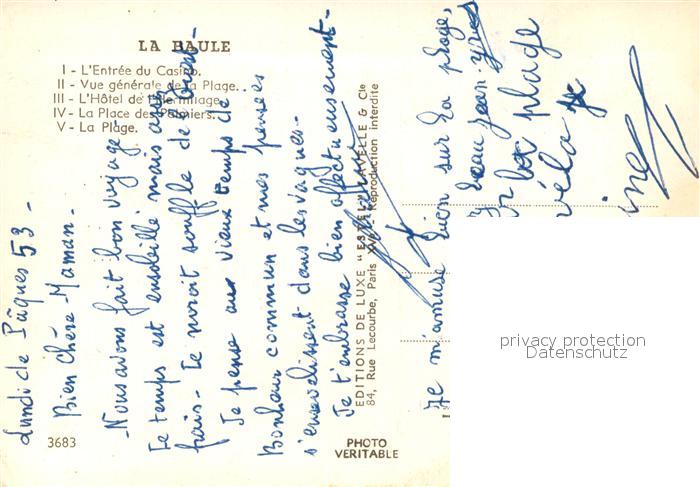 LA BAULE
I - L'Entrée du Casino.
II - Vue générale de la Plage.
III - L'Hôtel de l'Hermitage.
IV - La Place des Palmiers.
V - La Plage.
Lundi de Pâques 53 -
Bien chère Maman -
- Nous avons fait bon voyage -
Le temps est ensoleillé mais assez
frais - Le noroit souffle de l'ouest -
Je pense aux vieux temps de
Bonheur commun et mes pensées
s'ensevelissent dans les vagues -
Je t'embrasse bien affectueusement -
EDITIONS DE LUXE "ESTEL" LAVELLE & Cie
84, Rue Lecourbe, Paris XVe - Reproduction interdite
Je m'amuse bien sur la plage,
Jean-Yves
plage
3683
PHOTO
VERITABLE
privacy protection
Datenschutz